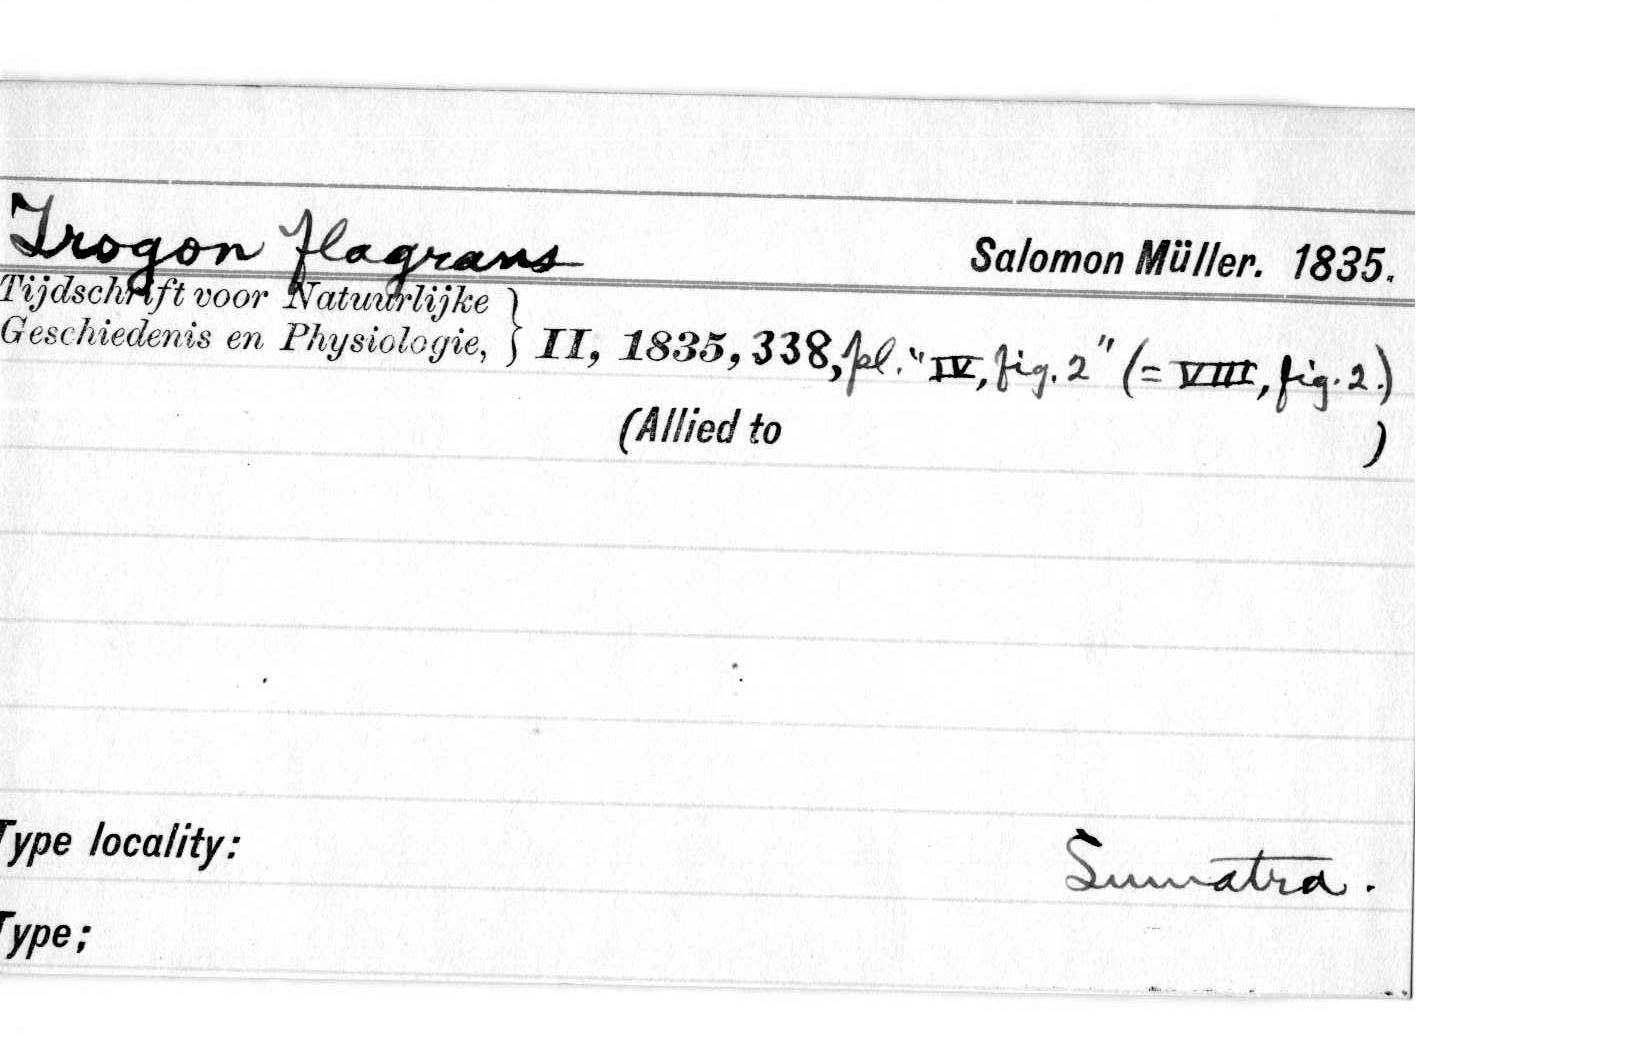 Trogon flagrans Salomon Müller. 1835.
Tijdschrift voor Natuurlijke
Geschiedenis en Physiologie, } II, 1835, 338, pl. "IV, fig. 2" (= VIII, fig. 2.)
(Allied to )
Type locality: Sumatra.
Type;